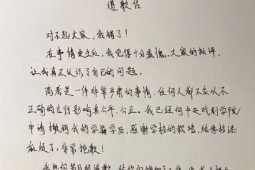 道歉信
对不起大家，我错了！
在事情发生后，我觉得十分羞愧，大家的批评，
让我真正认识了自己的问题。
高考是一件非常严肃的事情，任何人都不应以不
正确的言行影响其公平、公正。我已经向中央戏剧学院
申请撤销我的学籍学历，感谢学校的教培，给母校添
麻烦了，非常抱歉！